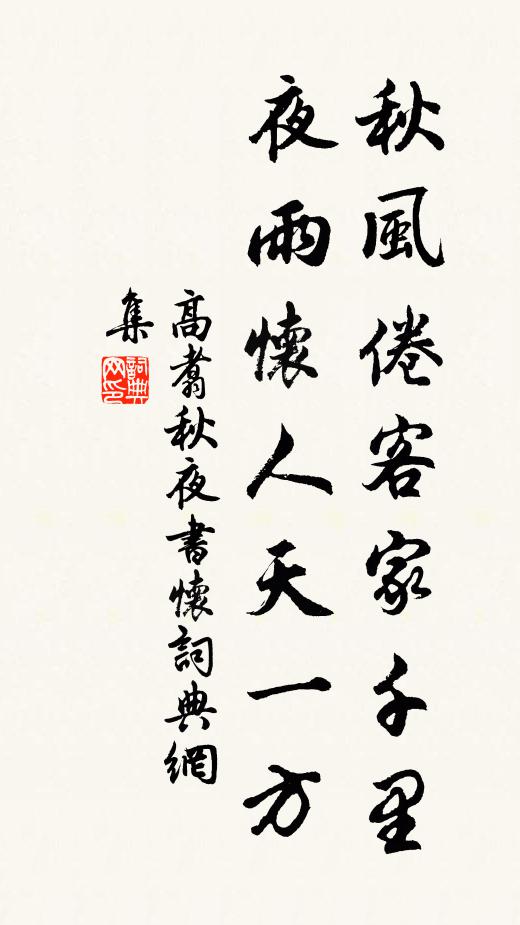 秋風倦客家千里
夜雨懷人天一方
高翥秋夜書懷詞典網
集
詞典
网印